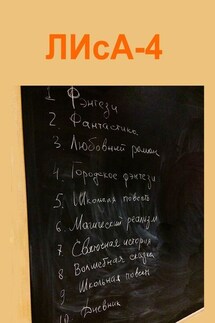 ЛИсА-4
1 Фэнтези
2. Фантастика
3 Любовный роман
4. Городское фэнтези
5. Школьная повесть
6. Магический реализм
7 Святочная история
8 Волшебная сказка
9 Школьная повесть
10. Дневник